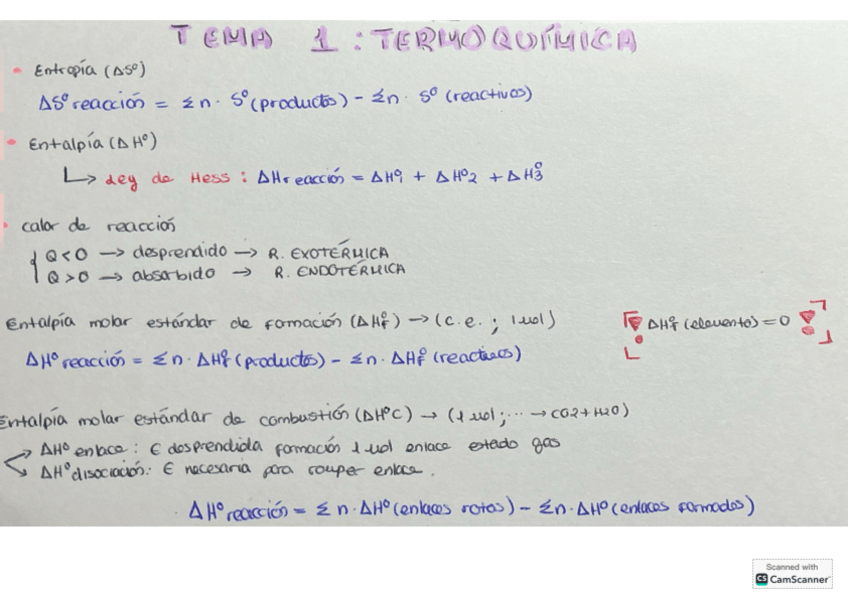 TEMA 1: TERMOQUÍMICA
• Entropía (ΔSº)
ΔSº reacción = Σn · Sº (productos) - Σn · Sº (reactivos)
• Entalpía (ΔHº)
↳ Ley de Hess: ΔHr eacción = ΔHº1 + ΔHº2 + ΔHº3
• calor de reacción
{ Q<0 → desprendido → R. EXOTÉRMICA
Q>0 → absorbido → R. ENDOTÉRMICA
Entalpía molar estándar de formación (ΔHºf) → (c.e.; 1mol)
ΔHºf (elemento) = 0
ΔHº reacción = Σn · ΔHºf (productos) - Σn · ΔHºf (reactivos)
Entalpía molar estándar de combustión (ΔHºC) → (1 mol; ... → CO2+H2O)
→ ΔHº enlace: E desprendida formación 1 mol enlace estado gas
→ ΔHº disociación: E necesaria para romper enlace.
ΔHº reacción = Σn · ΔHº (enlaces rotos) - Σn · ΔHº (enlaces formados)
Scanned with
CS CamScanner